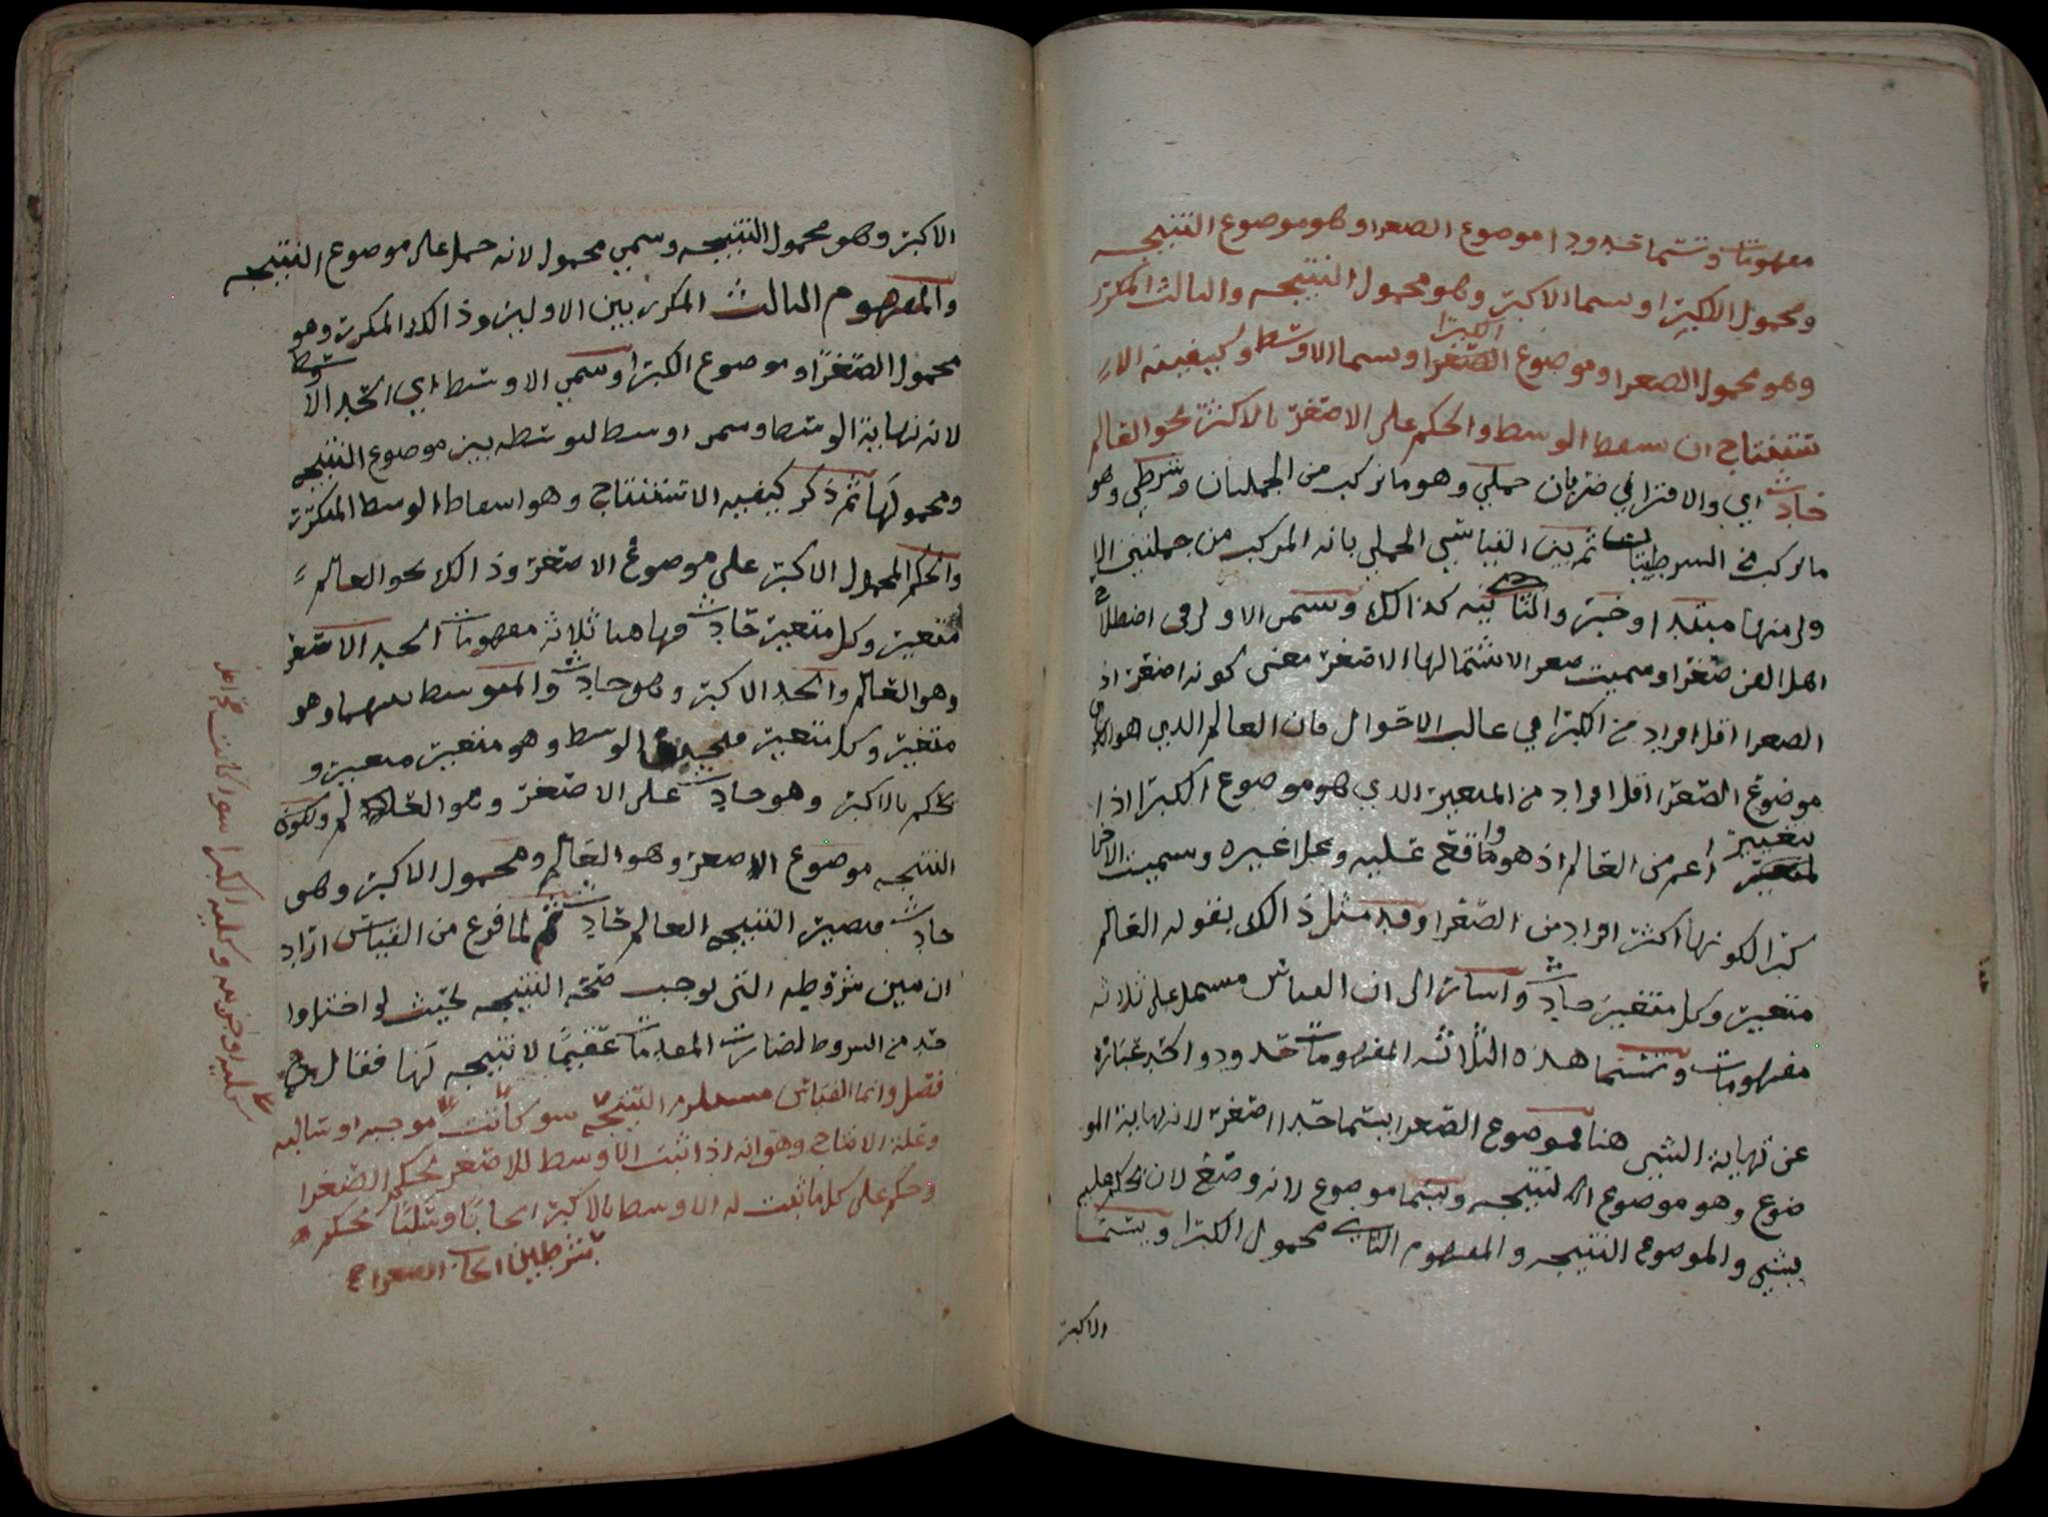 مفهومات وتسما حدودا موضوع الصعرا وهو موضوع النتيجه
ومحمول الكبرا وسما الاكبر وهو محمول النتيجه والثالث المكرر
وهو محمول الصعرا وموضوع الصغرا الكبرا وسما الاوسط وكيفيه الا
ستنتاج ان سقط الوسط والحكم على الاصغر بالاكثر نحو العالم
حادث اي والاقتراني ضربان حملي وهو ما تركب من الحمليات وشرطي وهو
ما تركب من الشرطيات ثم بين القياس الحملي بانه المركب من حملتين الا
ولى منها مبتدا وخبر والثانيه كذالك وتسمى الاولى في اصطلاح
اهل الفن صغرا وسميت صعرا لاشتمالها الاصغر معنى كونه اصغر اذ
الصعرا اقل افراد من الكبرا في غالب الاحوال فان العالم الذي هو
موضوع الصغرا اقل افراد من المتغير الذي هو موضوع الكبرا اذا
لمتغير اعم من العالم اذ هو واقع عليه وعلى غيره وسميت الاخرا
كبرا لكونها اكثر افراد من الصغرا وقد مثل ذالك بقوله العالم
متغير وكل متغير حادث واشار الى ان القياس مشتمل على ثلاثه
مفهومات وتسما هذه الثلاثه المفهومات حدود والحد عباره
عن نهاية الشي هنا فموضوع الصعرا يسما حدا اصغر لانه نهاية المو
ضوع وهو موضوع النتيجه ويسما موضوع لانه وضع لان يحكم عليه
بشي والموضوع النتيجه والمفهوم الثاني محمول الكبرا ويسما
الاكبر
الاكبر وهو محمول النتيجه وسمي محمول لانه حمل على موضوع النتيجه
والمفهوم الثالث المكرر بين الاولين وذالك المكرر وهو
محمول الصغرا وموضوع الكبرا وسمي الاوسط اي الحد الاوسط
لانه نهاية الوسط وسمى اوسط لتوسطه بين موضوع النتيجه
ومحمولها ثم ذكر كيفيه الاستنتاج وهو اسقاط الوسط المكرر
والحكم المحمول الاكبر على موضوع الاصغر وذالك نحو العالم
متغير وكل متغير حادث فها هنا ثلاثه مفهومات الحد الاصغر
وهو العالم والحد الاكبر وهو حادث والمتوسط بينهما وهو
متغير وكل متغير الوسط وهو متغير متغير و
يحكم بالاكبر وهو حادث على الاصغر وهو العالم ولكون
النتيجه موضوع الاصغر وهو العالم ومحمول الاكبر وهو
حادث فتصير النتيجه العالم حادث ثم لما فرغ من القياس اراد
ان يبين شروطه التي توجب صحة النتيجه بحيث لو اختل واو
حد من الشروط لصارت المقدمات عقيما لا نتيجه لها فقال
فصل وانما القياس مستلزم النتيجه سو كانت موجبه او سالبه
وعلة الانتاج وهو انه اذا ثبت الاوسط للاصغر بحكم الصغرا
وحكم على كل ما ثبت له الاوسط بالاكبر ايجابا وسلبا بحكم
بشرطين ايجاب الصعرا
سالبه او جزيه وكليه الكبرا سوا كانت